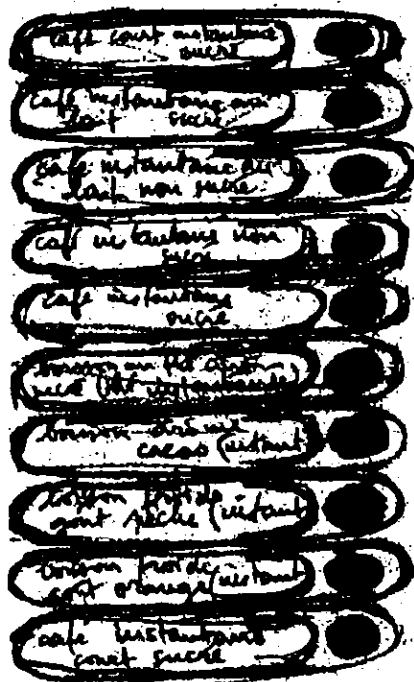 café court instantané
sucré
café instantané au
lait sucré
café instantané au
lait non sucré
café instantané non
sucré
café instantané
sucré
boisson au thé citron
sucré (thé instantané)
boisson
cacao (instant
boisson froide
gout pêche (instant
boisson froide
gout orange (instant
café instantané
court sucré